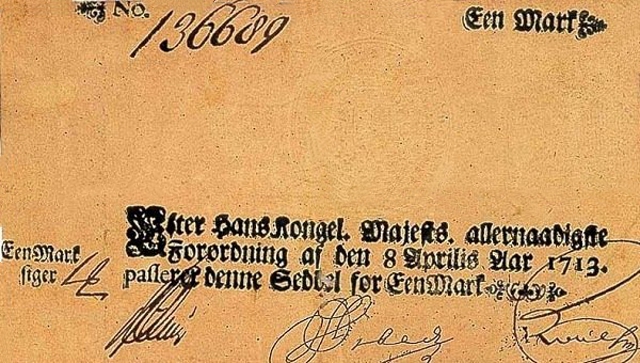 No. 136689
Een Mark
Efter Hans Kongel. Majests. allernaadigste
Forordning af den 8 Aprilis Aar 1713.
passerer denne Sedel for Een Mark
Een Mark
siger